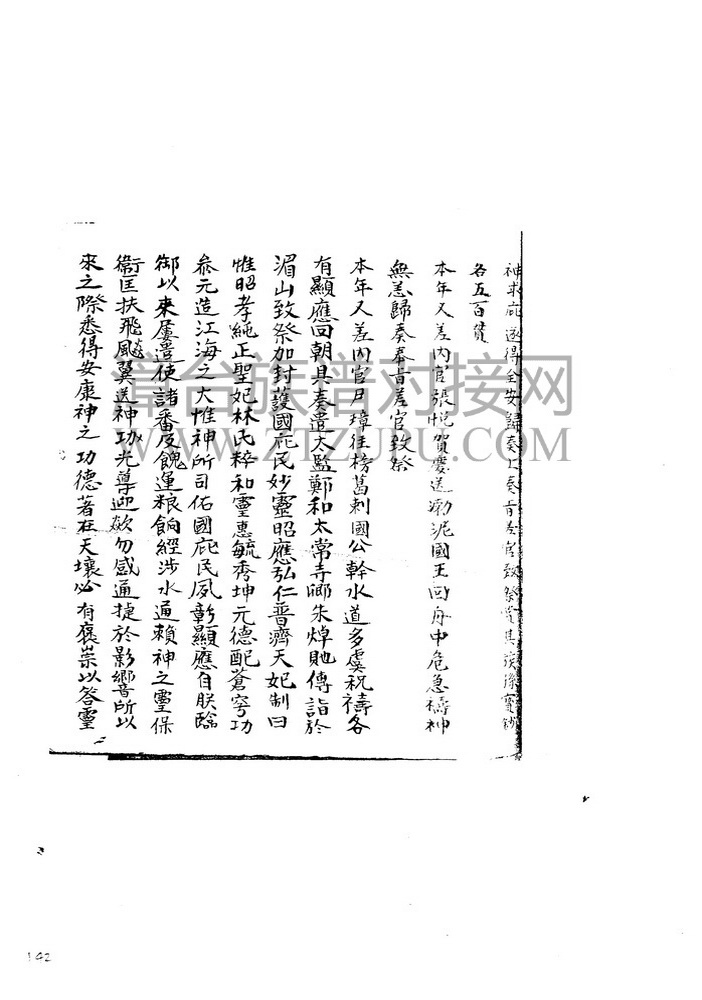 神求庇遂得全安歸奏上奏旨差官致祭賞其族孫寶鈔
各五百貫
本年又差內官張悅賀慶送渤泥國王回舟中危急禱神
無恙歸奏奉旨差官致祭
本年又差內官尹璋往榜葛剌國公幹水道多虞祝禱各
有顯應回朝具奏遣太監鄭和太常寺卿朱焯馳傳詣於
湄山致祭加封護國庇民妙靈昭應弘仁普濟天妃制曰
惟昭孝純正聖妃林氏粹和靈惠毓秀坤元德配蒼穹功
叅元造江海之大惟神所司佑國庇民夙彰顯應自朕臨
御以來屢遣使諸番及餽運粮餉經涉水通賴神之靈保
衛匡扶飛飈翼送神功光導迎歘勿感通捷於影響所以
來之際悉得安康神之功德著在天壤必有褒崇以答靈
章台族谱对接网
WWW.ZTZUPU.COM
142